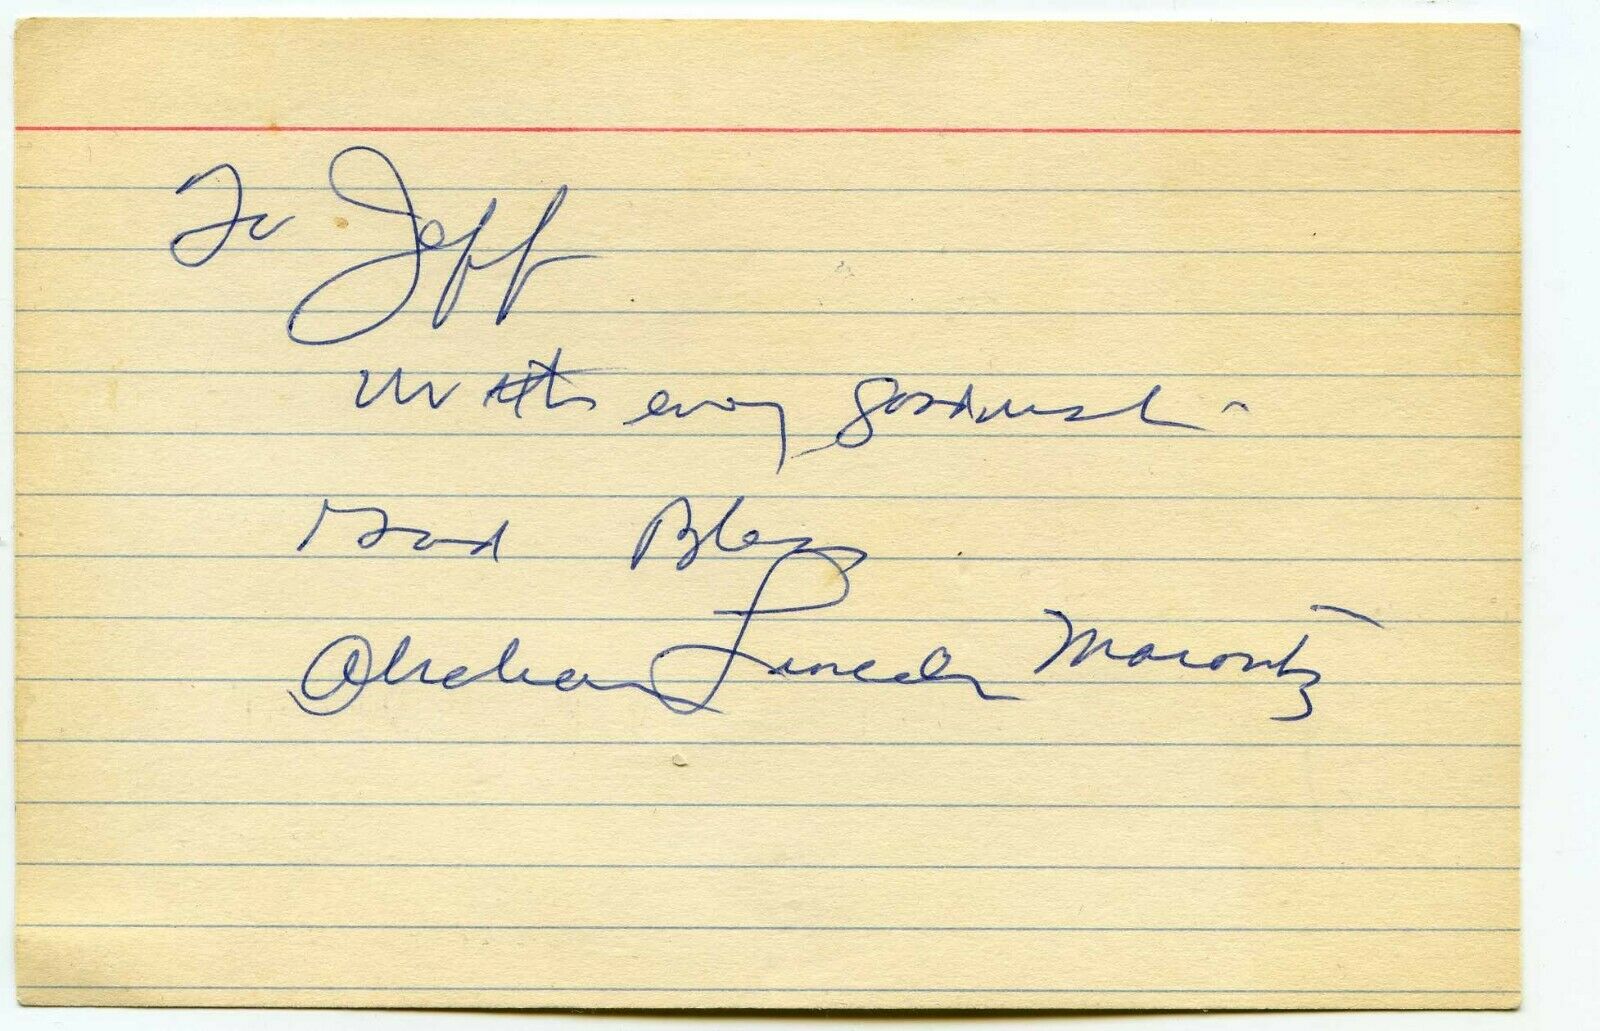 To Jeff
With every good wish -
God Bless
Abraham Lincoln Marovitz